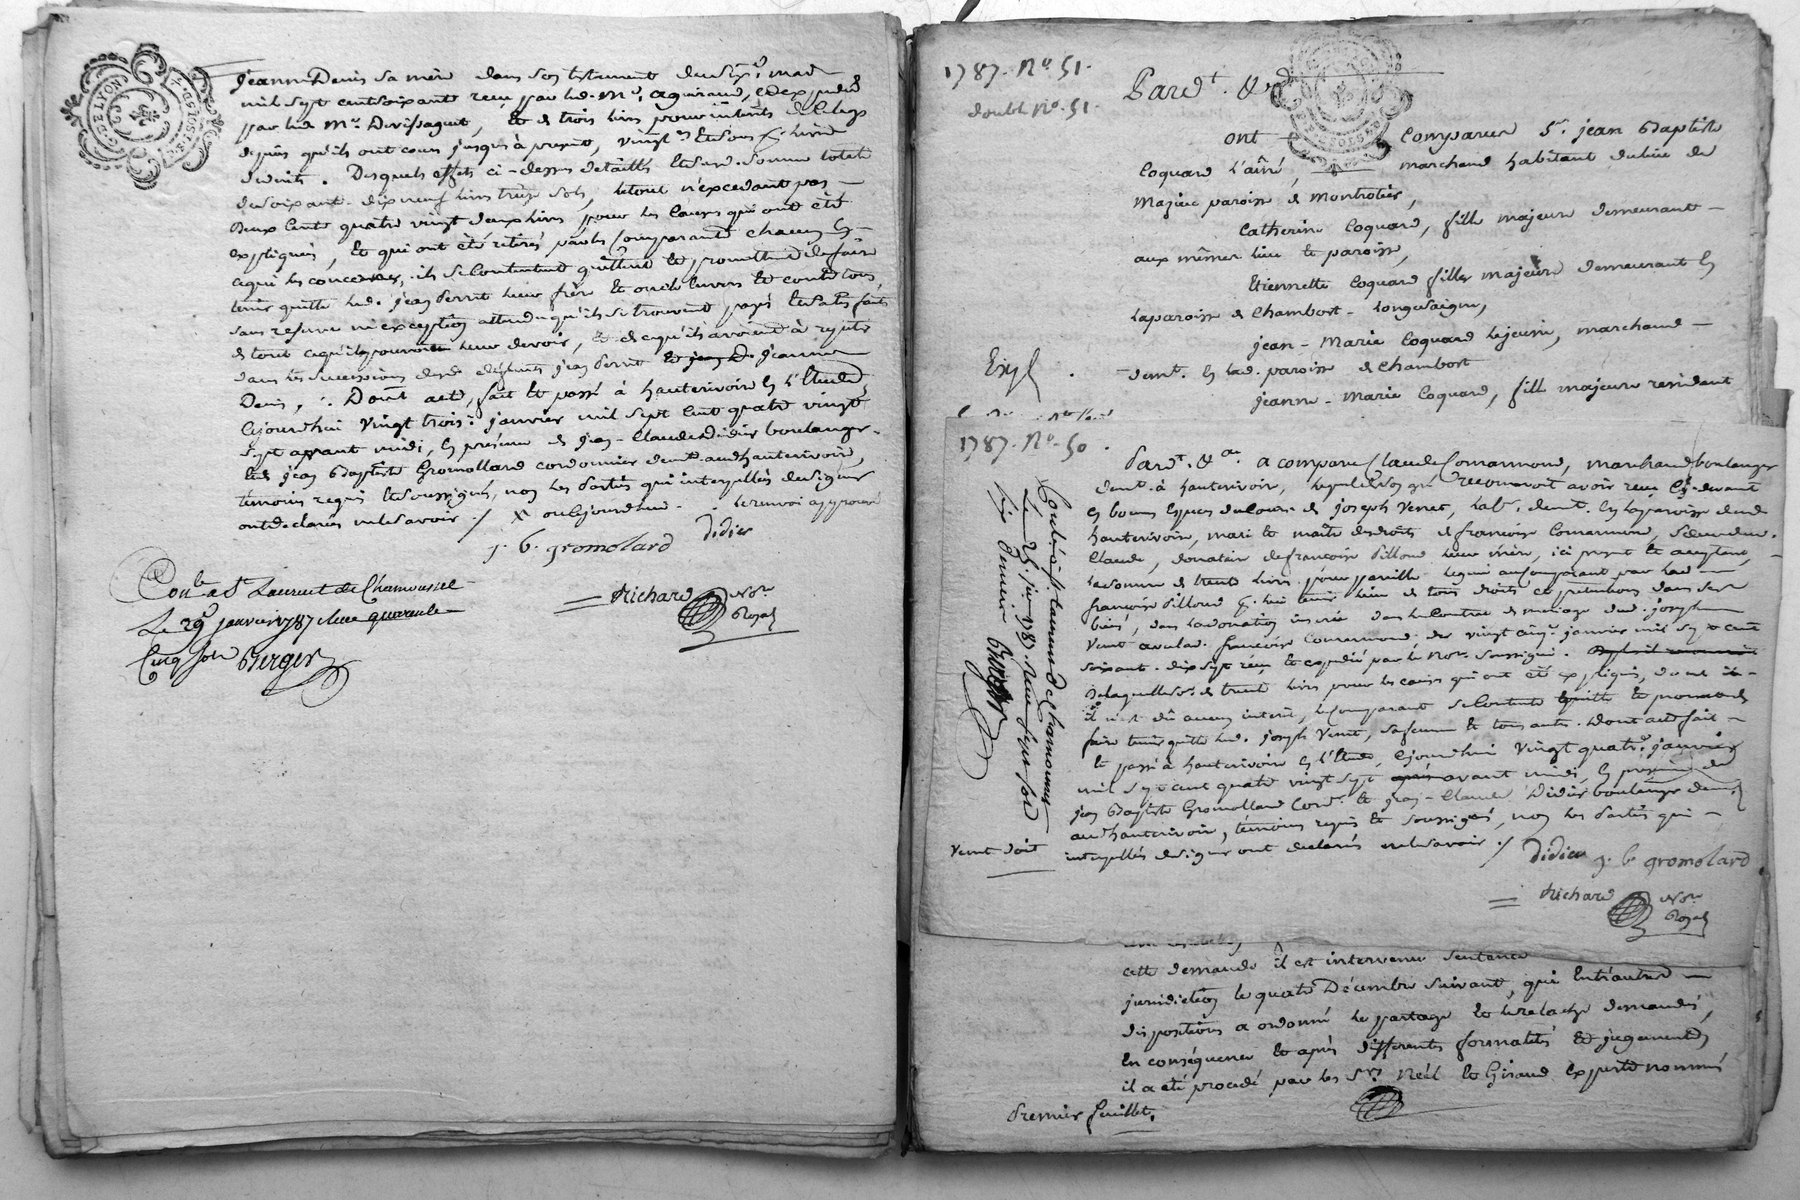 G. DE LYON
Jeanne Denis sa mère dans son testament du six.e mai
mil sept cent soixante recu par led. M.e aguiraud, et expedié
par led. M.e Devissaguet, et de trois livres pour interets
depuis qu'ils ont cours jusques à present, vingt
desdroits. Desquels effets ci-dessus detaillés et lad. somme totale
de soixante-dix neuf livres treize sols, le tout n'excedant pas
Deux cent quatre vingt deux livres, pour les causes qui ont été
expliquées, et qui ont été retirés par les comparants chacun en
ce qui les concerne, ils se contentent quittent et promettent de faire
tenir quitte led. jean leur frère et envers et contre tous
sans reserve ni exception attendu qu'ils se trouvent payés et satisfaits
de tout ce qu'il pouvoit leur devoir, et de ce qu'ils avoient à repeter
dans les successions desd. defunts jean et jeanne
Denis, Dont acte, fait et passé à hauterivoire en l'Etude
cejourd'hui vingt trois janvier mil sept cent quatre vingt
sept avant midi, en presence de jean-Claude Didier boulanger
et de jean Baptiste Gromollard cordonnier demt. aud. hauterivoire,
témoins requis et soussignés, non les parties qui interpellées de signer
ont declarés ne le savoir ./ X ou cejourdhui. le renvoi approuvé
j. b. gromolard Didier
Richard No.re Royal
Con.lé a S.t Laurent de Chamousset
Le 29 janvier 1787 Reçu quarante
Cinq sols Berger
1787. N.o 51.
double N.o 51.
Pard.t &
ont comparus S.r jean Baptiste
Coquard l'aîné, marchand habitant du lieu de
Mazieu paroisse de Montrotier,
Catherine Coquard, fille majeure demeurant
aux mêmes lieu et paroisse,
Etiennette Coquard fille majeure demeurant en
la paroisse de Chambost-Longesaigne,
jean-Marie Coquard le jeune, marchand
demt. en lad. paroisse de Chambost
jeanne-Marie Coquard, fille majeure residant
Exp.
1787. N.o 50.
Pard.t &a. a comparu Claude Comarmond, marchand boulanger
demt. à hauterivoire, lequel de son gré reconnoit avoir reçu ci-devant
en bonnes especes du cours de joseph Venet, hab. demt. en la paroisse dud.
hauterivoire, mari et maître des droits de françoise Comarmond, sœur dud.
Claude, donataire de françoise Pilloud leur mère, ici present et acceptant,
la somme de trente livres pour pareille leguée au comparant par lad.
françoise Pilloud pour lui tenir lieu de tous droits et pretentions dans ses
biens, dans la donation insérée dans le Contrat de mariage dud. joseph
Venet avec lad. françoise Comarmond du vingt cinq janvier mil sept cent
soixante-dix sept reçu et expedié par le No.re soussigné.
De laquelle so.e de trente livres pour les causes qui ont été expliqués, dont
il n'est dû aucun interêt, le comparant se contente quitte et promet de
faire tenir quitte led. joseph Venet, sa femme et tous autres. Dont acte fait
et passé à hauterivoire en l'Etude, cejourdhui vingt quatre janvier
mil sept cent quatre vingt sept avant midi, en presence de
jean Baptiste Gromollard Cord.r et jean-Claude Didier boulanger demt.
aud. hauterivoire, témoins requis et soussignés, non les parties qui
interpellées de signer ont declarés ne le savoir ./
Didier j. b. gromolard
Richard No.re Royal
Contrôlé à S.t Laurent de Chamousset
Le 29 j.er 1787. Reçu sept sols
six deniers Berger
Venet doit
cette demande il est intervenu sentence
juridiction le quatre Décembre suivant, qui entr'autres
dispositions a ordonné le partage et le relache demandés,
En conséquence et après differentes formalités et jugements
il a été procedé par les S.rs Néel et Giraud experts nommés
Premier feuillet.